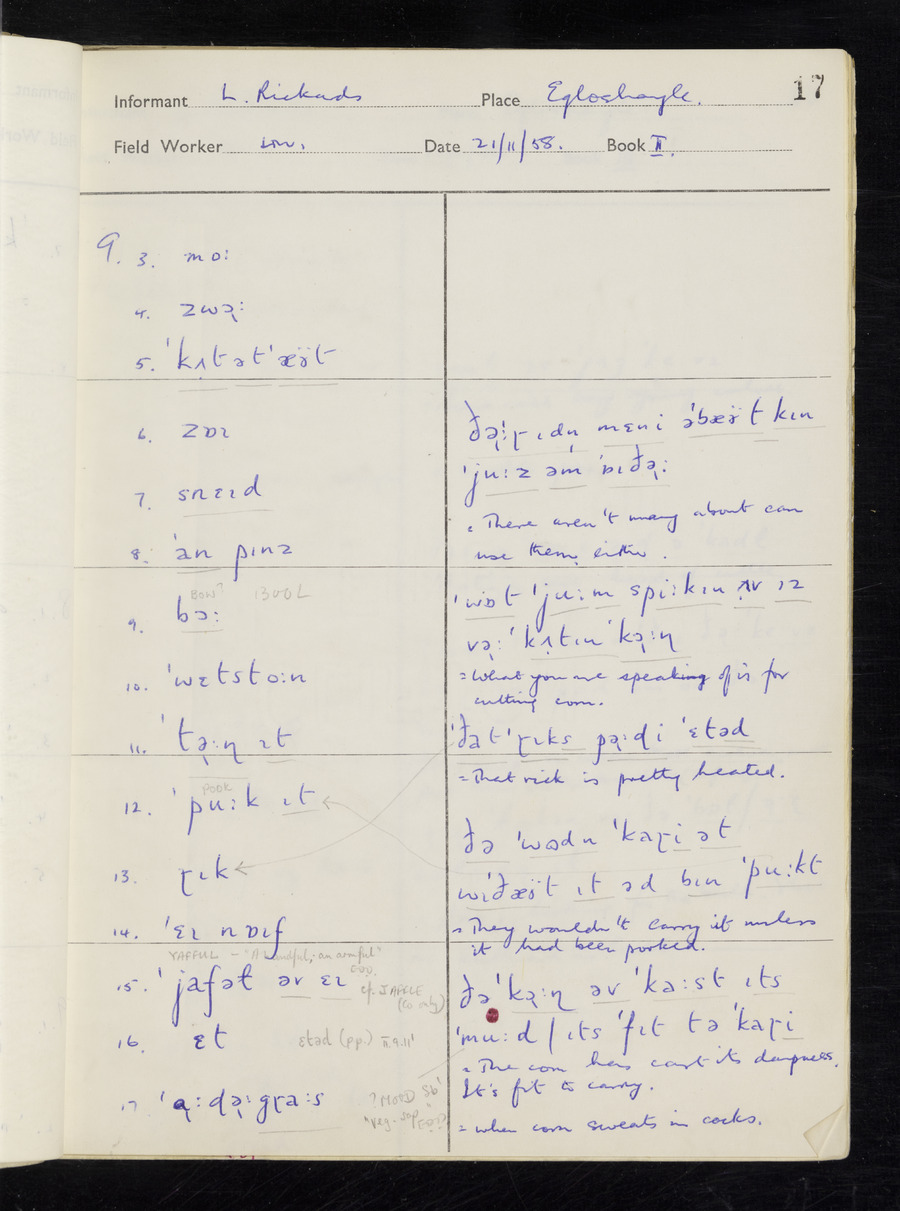 17
Informant L. Rickards Place Egloshayle.
Field Worker Date 21/11/58. Book II.
9. 3. moː
4. zwəɽː
5. ˈkʌtətˈæöt
6. zɒɪ
7. snɛɪd
8. ˈan pɪnz
BOW? BOOL
9. bɔː
10. ˈwɛtstoːn
11. ˈtəɽːɳ ɪt
POOK
12. ˈpuːk ɪt
13. ɽɪk
14. ˈɛɪ nɒɪf
YAFFUL – "A handful; an armful"
EDD.
15. ˈjafəɫ əv ɛɪ cf. JAFFLE
(Co only)
16. ɛt ɛtəd (pp.) II.9.11'
17. ˈɑːdəɽːgɽaːs
? MOOD sb'
"veg. sap" EDD?
ɪdn mɛni əˈbæöt kɪn
ˈjuːz əm ˈɒɪðəɽː
= There aren't many about can
use them either.
ˈwɒt ˈjuːm spiːkɪn ʌv ɪz
vəɽː ˈkʌtɪn ˈkəɽːɳ
= What you are speaking of is for
cutting corn.
ˈðat ˈɽɪks pəɽːdi ˈɛtəd
= That rick is pretty heated.
ðə ˈwədn ˈkaɽi ət
wiˈðæöt ɪt əd bɪn ˈpuːkt
= They wouldn't carry it unless
it had been pooked.
ðə ˈkəɽːɳ əv ˈkaːst ɪts
ˈmuːd / ɪts ˈfɪt tə ˈkaɽi
= The corn has cast its dampness.
It's fit to carry.
= when corn sweats in cocks.